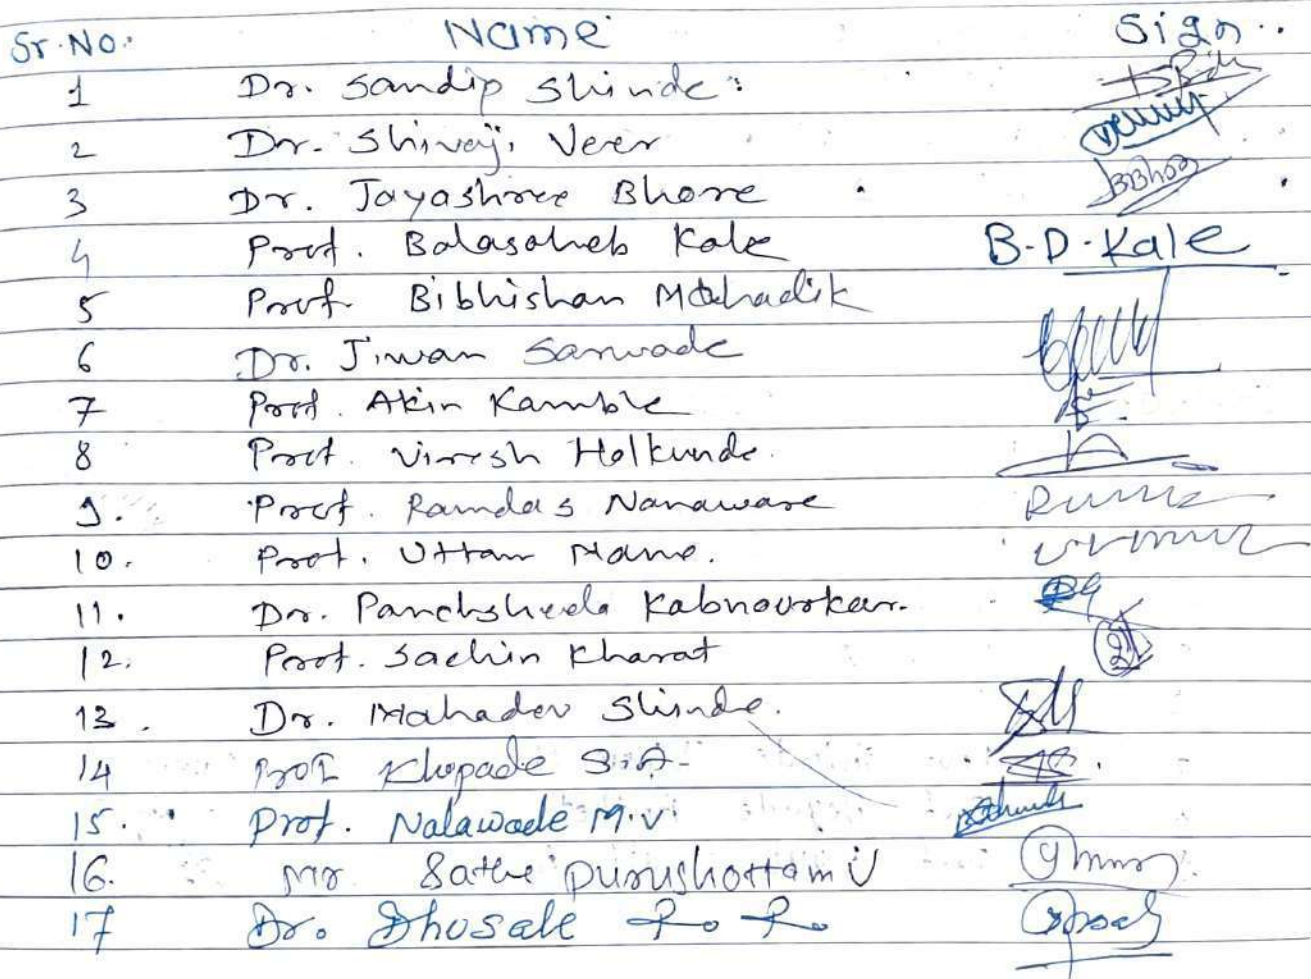 Sr. No. Name Sign
1 Dr. Sandip Shinde
2 Dr. Shivaji Veer
3 Dr. Jayashree Bhore BBhore
4 Prof. Balasaheb Kale B.D.Kale
5 Prof. Bibhishan Mahadik
6 Dr. Jiwan Sarwade
7 Prof. Akin Kamble
8 Prof. Viresh Holkunde
9. Prof. Ramdas Nanaware
10. Prof. Uttam Mane.
11. Dr. Panchsheela Kabnoorkar.
12. Prof. Sachin Kharat
13. Dr. Mahadev Shinde.
14 Prof Khopade S.A.
15. Prof. Nalawade M.V.
16. Mr Sathe Purushottam U
17 Dr. Bhosale R. R.